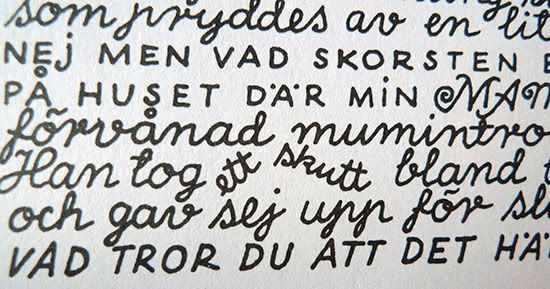 som pryddes av en lit
NEJ MEN VAD SKORSTEN E
PÅ HUSET DÄR MIN MAM
förvånad mumintro
Han tog ett skutt bland
och gav sej upp för sl
VAD TROR DU ATT DET HÄ